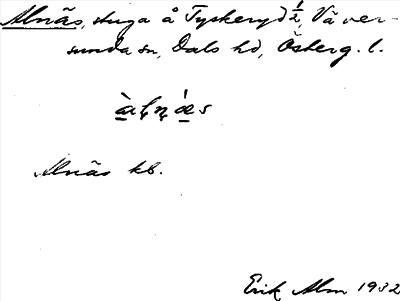 Alnäs, stuga å Tyskeryd 1/2, Väver-
sunda sn, Dals hd, Österg. l.
Alnäs kb.
Erik Alm 1932